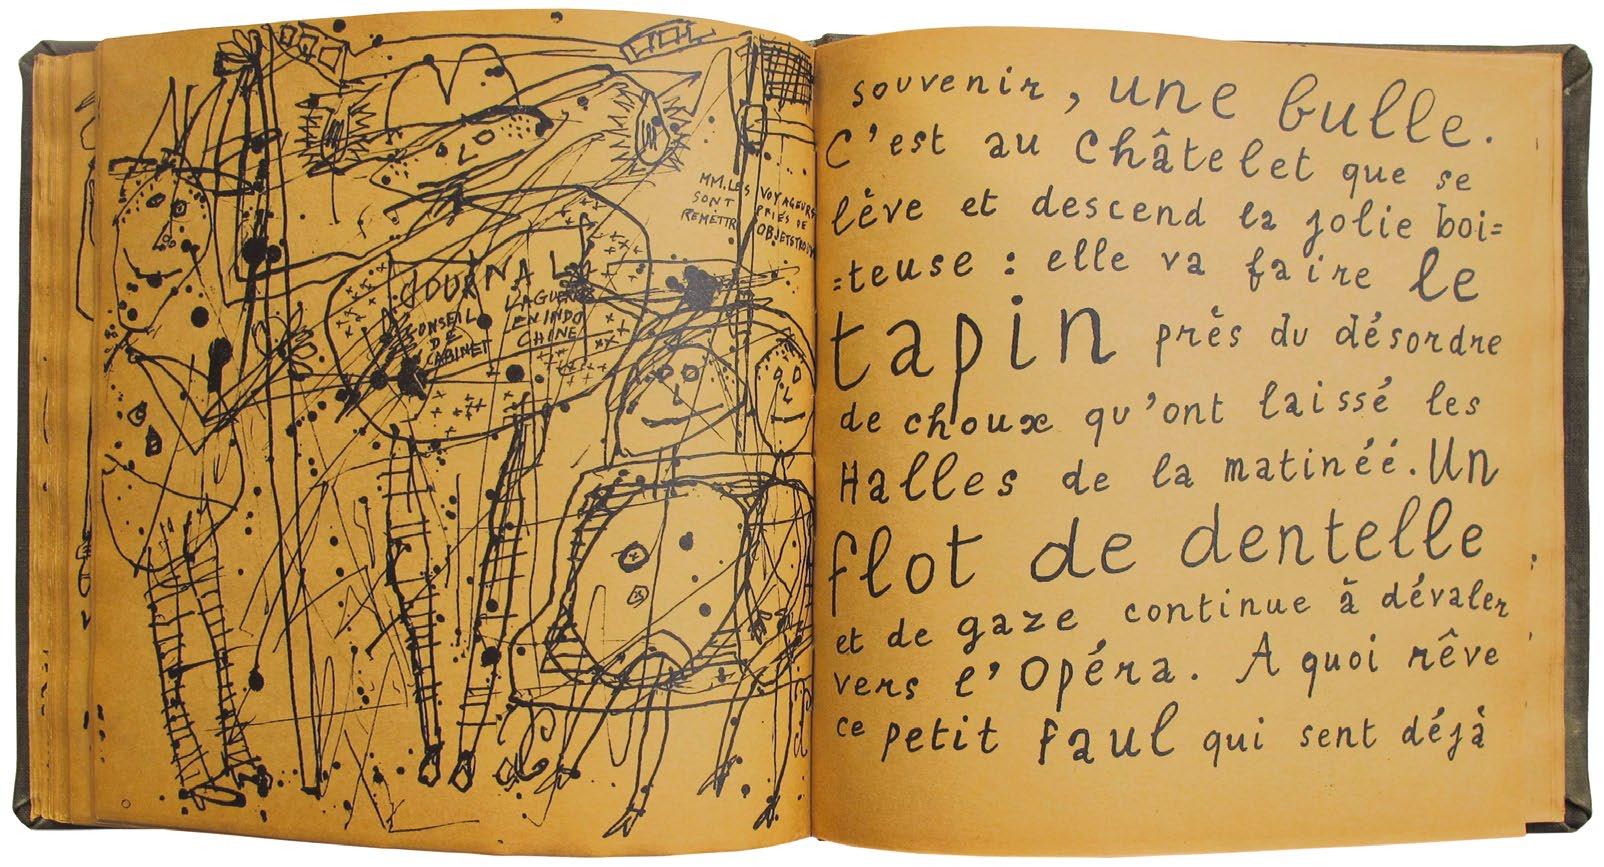 MM. LES VOYAGEURS
SONT PRIÉS DE
REMETTR OBJETS TROUV
JOURNAL
CONSEIL
DE
CABINET
LA GUERRE
EN INDO
CHINE
souvenir, une bulle.
C'est au Châtelet que se
lève et descend la jolie boi=
=teuse : elle va faire le
tapin près du désordre
de choux qu'ont laissé les
Halles de la matinéé. Un
flot de dentelle
et de gaze continue à dévaler
vers l'Opéra. A quoi rêve
ce petit Paul qui sent déjà